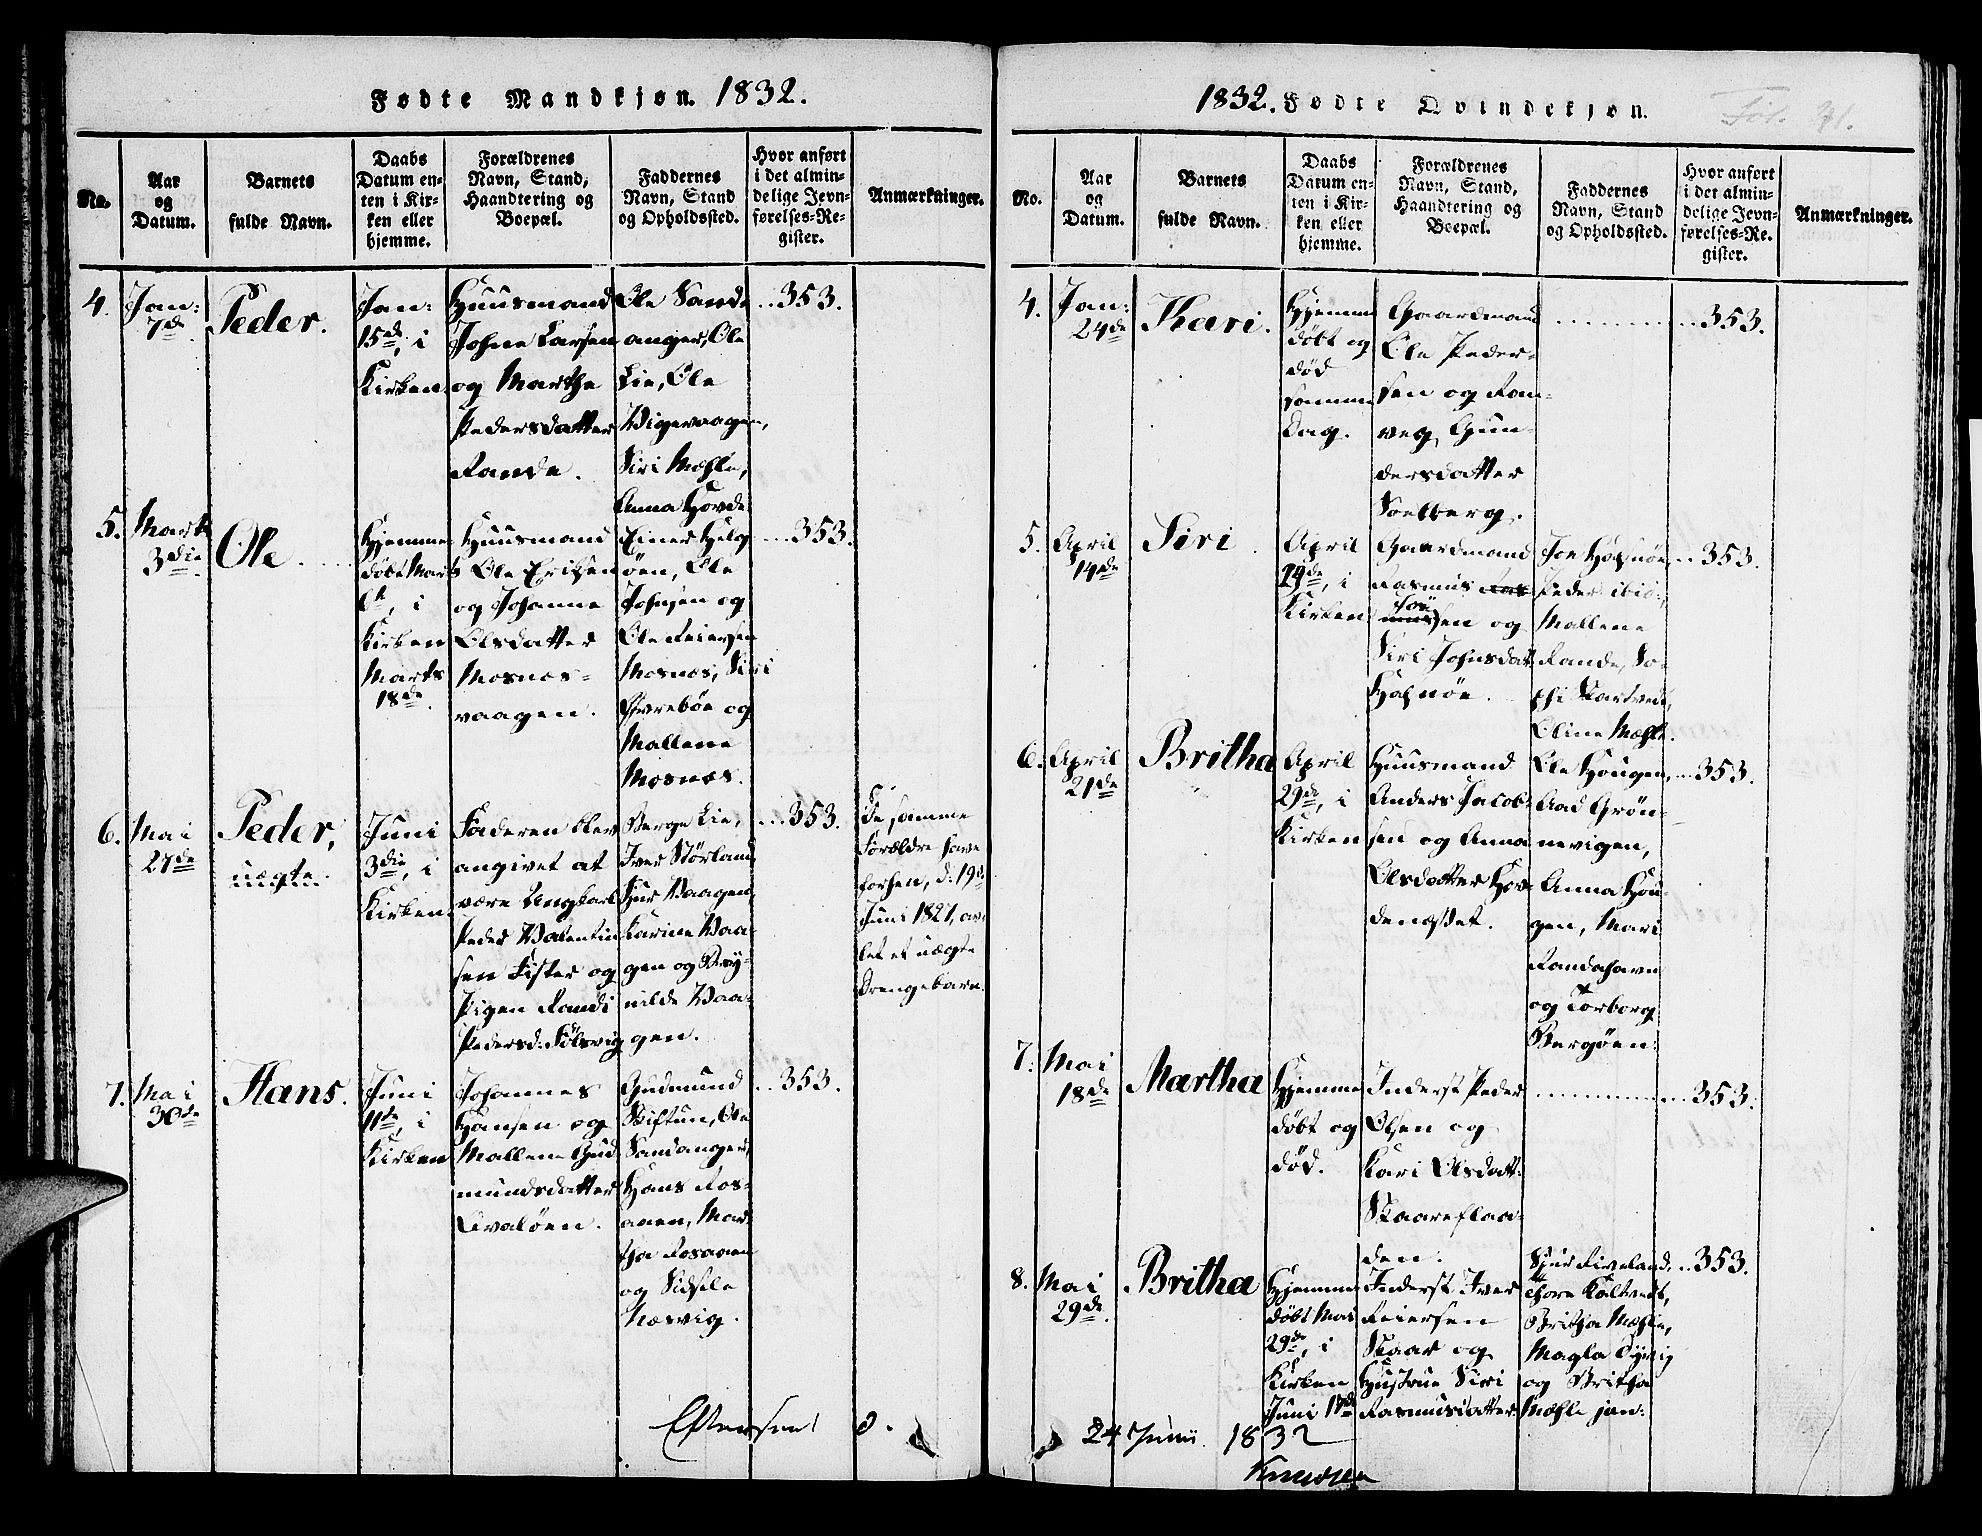 Fødte Mandkjøn. 1832.
No.
Aar
og
Datum.
Barnets
fulde Navn.
Daabs
Datum en-
ten i Kir-
ken eller
hjemme.
Forældrenes
Navn, Stand,
Haandtering og
Boepæl.
Faddernes
Navn, Stand
og Opholdssted.
Hvor anført
i det almin-
delige Jevn-
førelses-Re-
gister.
Anmærkninger.
4.
Jan:
7de
Peder.
Jan:
15de, i
Kirken
Huusmand
Johne Larsen
og Marthe
Pedersdatter
Rande.
Ole Sand-
anger, Ole
Lie, Ole
Wigevaagen,
Siri Mæhle,
Anna Hovde
..353.
5.
Marts
3die
Ole.
Hjemme
døbt Marts
i
Kirken
Marts
18de
Huusmand
Ole Eriksen
og Johanne
Olsdatter
Mosnes-
vaagen.
Einer Helg
öen, Ole
Johnsen og
Ole Reiersen
Mosnes, Siri
Øvrebøe og
Mallene
Mosnes.
...353.
6.
Mai
27de
Peder,
uægte.
Juni
3die, i
Kirken
Faderen blev
angivet at
være Ungkarl
Peder Valentin
sen Fister og
Pigen Randi
Pedersd: Følsvig
Berge Lie,
Iver Störland
Sjur Vaagen
Karine Vaa-
gen og Bry-
nilde Vaa-
gen.
...353.
De samme
Forældre have
forhen, d: 19de
Juni 1827, av-
let et uægte
Drengebarn.
7.
Mai
30de
Hans.
Juni
11de, i
Kirken
Johannes
Hansen og
Mallene Gud
mundsdatter
Eivaløen.
Gudmund
Biftun, Ole
Sandanger,
Hans Ros-
aaen, Mar
tha Rosaaen
og Sidsele
Næsvig.
..353.
Efterseet d.
1832. Fødte Qvindekjøn.
Fol. 31.
No.
Aar
og
Datum.
Barnets
fulde Navn.
Daabs
Datum en-
ten i Kir-
ken eller
hjemme.
Forældrenes
Navn, Stand,
Haandtering og
Boepæl.
Faddernes
Navn, Stand
og Opholdssted.
Hvor anført
i det almin-
delige Jevn-
førelses-Re-
gister.
Anmærkninger.
4.
Jan:
24de
Kari.
Hjemme
døbt og
død
samme
Dag.
Gaardmand
Ole Peder-
sen og Ran-
veg Gun-
dersdatter
Soelberg.
...353.
5.
April
14de
Siri
April
29de, i
Kirken
Gaardmand
Rasmus Ras
mussen og
Siri Johnsdatt
Halsnøe.
Joe Halsnøe
Peder ibid:,
Mallene
Rande, So-
phi Skartvedt,
Oline Mæhle.
..353.
6.
April
21de
Britha
April
29de, i
Kirken
Huusmand
Anders Jacob-
sen og Anna
Olsdatter Hov-
denæsset.
Ole Hougen,
Aad Grön-
nevigen,
Anna Hou-
gen, Mari
Randahavn
og Torborg
Bergöen:
...353.
7.
Mai
18de
Martha
Hjemme
døbt og
død.
Inderst Peder
Olsen og
Kari Olsdatt:
Skaareflaa-
den.
...353.
8.
Mai
29de
Britha
Hjemme
døbt Mai
29de, i
Kirken
Juni 17de
Inderst Iver
Reiersen
Skaar og
Hustrue Siri
Rasmusdatter
Sjur Fiveland,
Thore Kaltvedt,
Britha Mæhle,
Magla Dyvig
og Britha
Mæhle jun:
..353.
24 Junii 1832
Knudsen